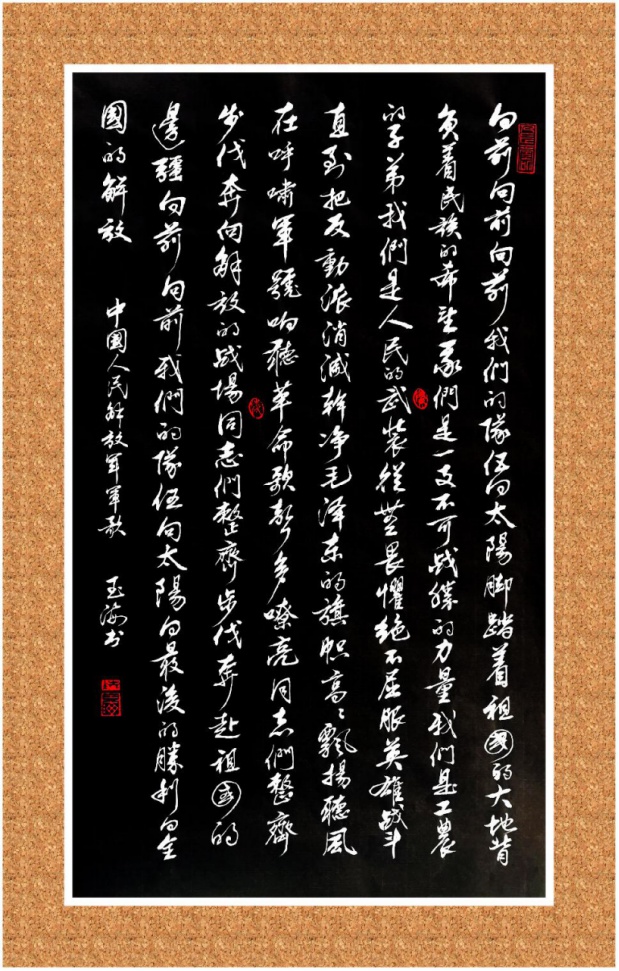 向前向前向前我們的隊伍向太陽腳踏着祖國的大地背
負着民族的希望我們是一支不可战勝的力量我們是工農
的子弟我們是人民的武裝從無畏懼絕不屈服英雄战斗
直到把反動派消滅幹净毛泽东的旗帜高々飄揚聽風
在呼嘯軍號响聽革命歌聲多嘹亮同志們整齊
步伐奔向解放的战場同志們整齊步伐奔赴祖國的
邊疆向前向前我們的隊伍向太陽向最後的勝利向全
國的解放 中國人民解放军軍歌 玉海书